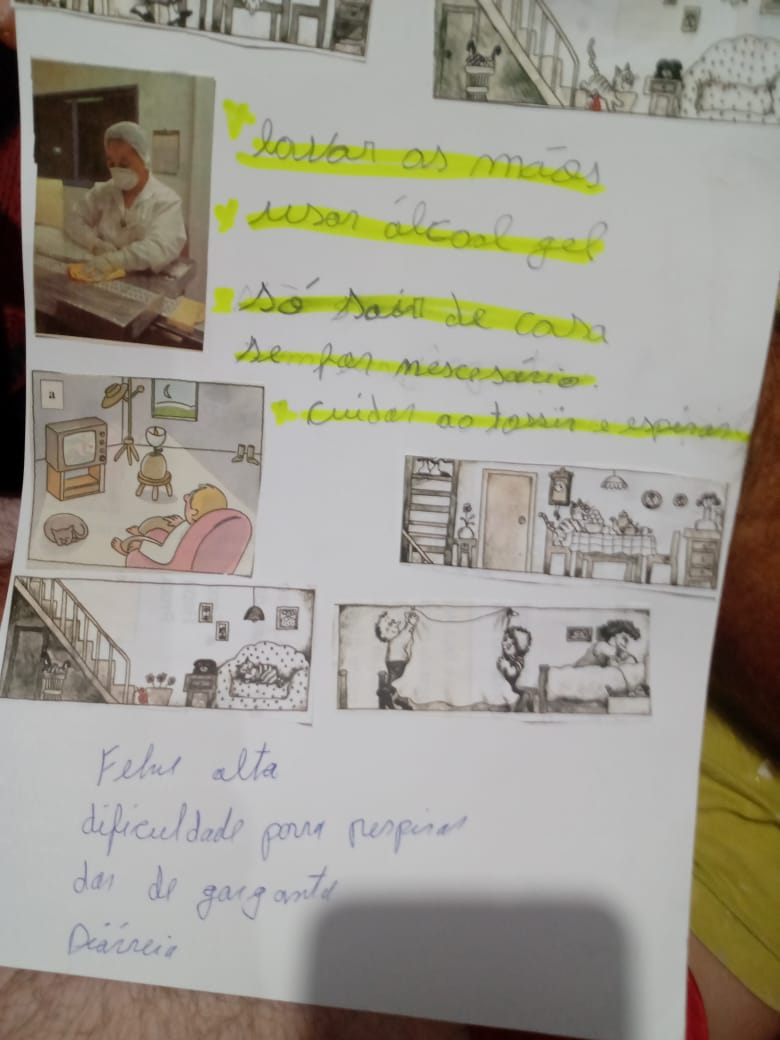 lavar as mãos
usar álcool gel
só sair de casa
se for nescesário.
cuidar ao tossir e espirar
a
Febre alta
dificuldade para respirar
dor de garganta
Diárreia